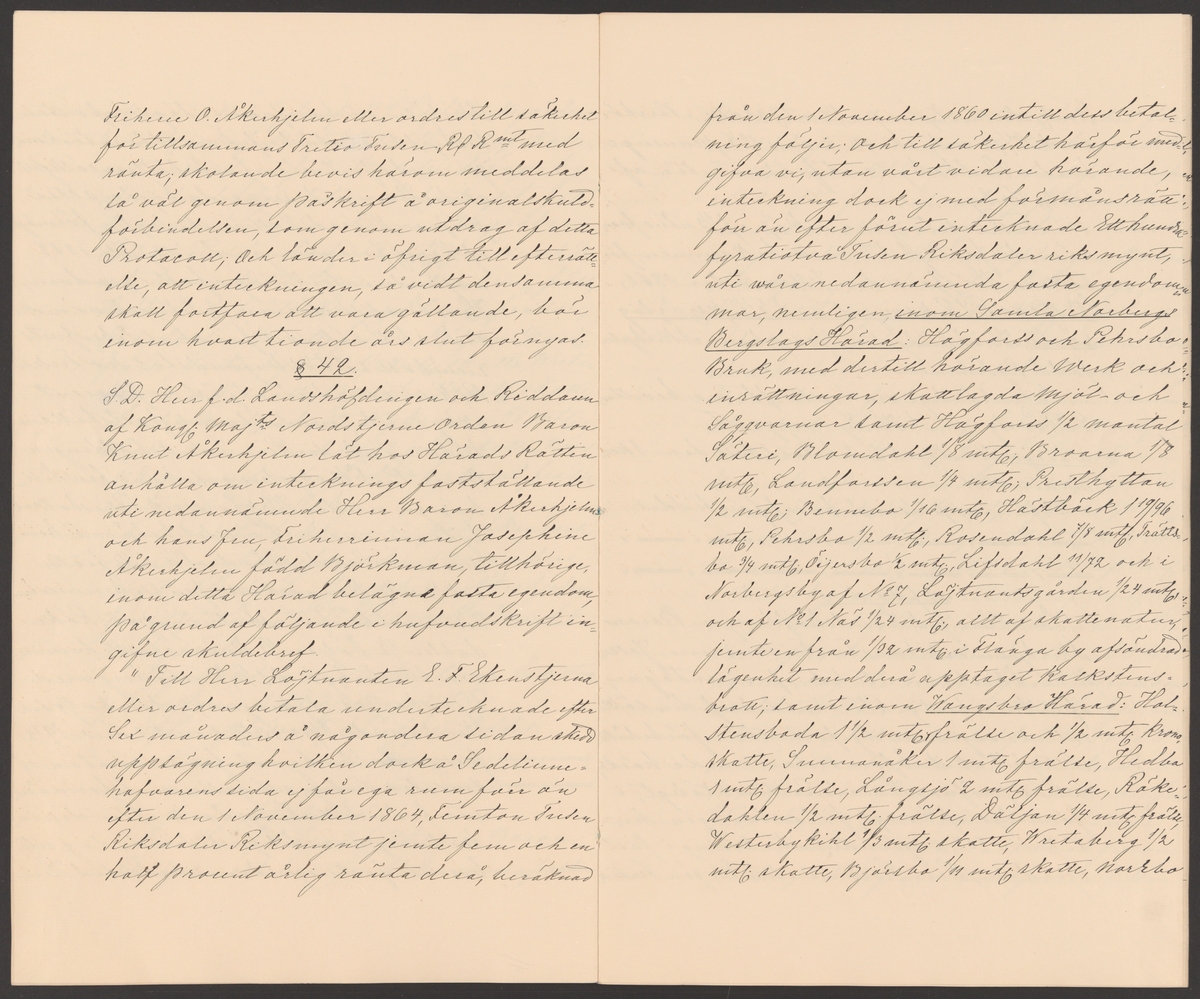 Friherre O. Åkerhjelm eller ordres till säkerhet
för tillsammans Tretio Tusen Rd Rmt med
ränta; skolande bevis härom meddelas
så väl genom påskrift å originalskuld=
förbindelsen, som genom utdrag af detta
Protocoll; Och länder i öfrigt till efterrätt=
else, att inteckningen, så vidt densamma
skall fortfara att vara gällande, bör
inom hvart tionde års slut förnyas.
§ 42.
S. D. Herr f. d. Landshöfdingen och Riddaren
af Kongl. Majts Nordstjerne Orden Baron
Knut Åkerhjelm lät hos Härads Rätten
anhålla om intecknings fastställande
uti nedannämnde Herr Baron Åkerhjelms
och hans Fru, Friherrinnan Josephine
Åkerhjelm född Björkman, tillhörige,
inom detta Härad belägne fasta egendom,
på grund af följande i hufvudskrift in=
gifne skuldebref.
" Till Herr Löjtnanten E. F. Ekenstjerna
eller ordres betala undertecknade efter
Sex månaders å någondera sidan skedd
uppsägning hvilken dock å Sedelinne=
hafvarens sida ej får ega rum förr än
efter den 1 November 1864, Femton Tusen
Riksdaler Riksmynt jemte fem och en
half procent årlig ränta derå, beräknad
från den 1 November 1860 intill dess betal=
ning följer; Och till säkerhet härför med=
gifva vi, utan vårt vidare hörande,
inteckning dock ej med förmånsrätt
förr än efter förut intecknade Ett hundra
fyratiotvå Tusen Riksdaler riksmynt,
uti wåra nedannämnda fasta egendom=
mar, nemligen inom Gamla Norbergs
Bergslags Härad: Högforss och Pehrsbo
Bruk, med dertill hörande Werk och
inrättningar, skattlagda Mjöl- och
Sågqvarnar samt Högforss 1/2 mantal
Säteri, Blomdahl 1/8 mtl, Broarna 1/8
mtl, Landforssen 1/4 mtl, Presthyttan
1/2 mtl; Bennebo 1/16 mtl, Hästbäck 1 19/96
mtl, Pehrsbo 1/2 mtl, Rosendahl 7/8 mtl, Trätts=
bo 3/4 mtl, Öijersbo 1/2 mtl, Lifsdahl 11/72 och i
Norbergsby af No 7, Löjtnantsgården 1/24 mtl
och af No 1 Näs 1/24 mtl, allt af skattenatur,
jemte en från 1/32 mtl i Flänga by afsöndrad
lägenhet med derå upptaget Kalkstens=
brott; samt inom Wangsbro Härad: Hol=
stensboda 1 1/2 mtl frälse och 1/2 mtl krono
skatte, Summanåker 1 mtl frälse, Hedbo
1 mtl frälse, Långsjö 2 mtl frälse, Röke=
dahlen 1/2 mtl frälse, Däljan 1/4 mtl frälse,
Westerbykihl 1/3 mtl skatte, Wretaberg 1/2
mtl skatte, Björsbo 1/11 mtl skatte, Norrbo